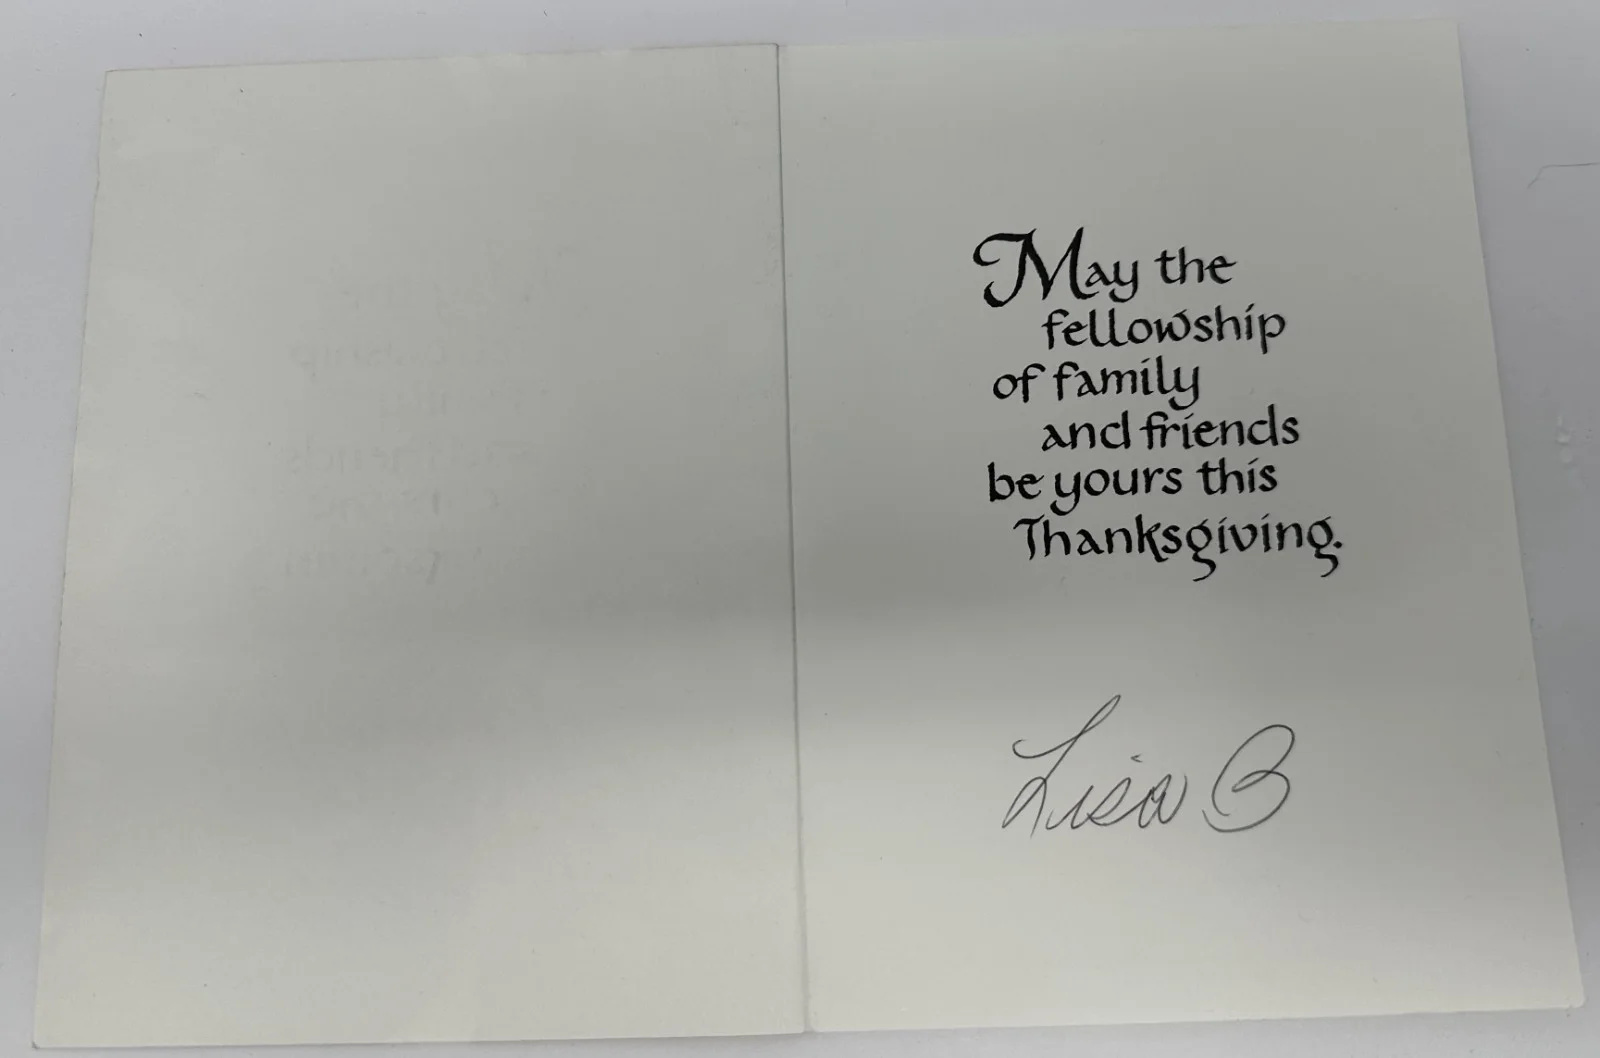 May the
fellowship
of family
and friends
be yours this
Thanksgiving.
Lisa B